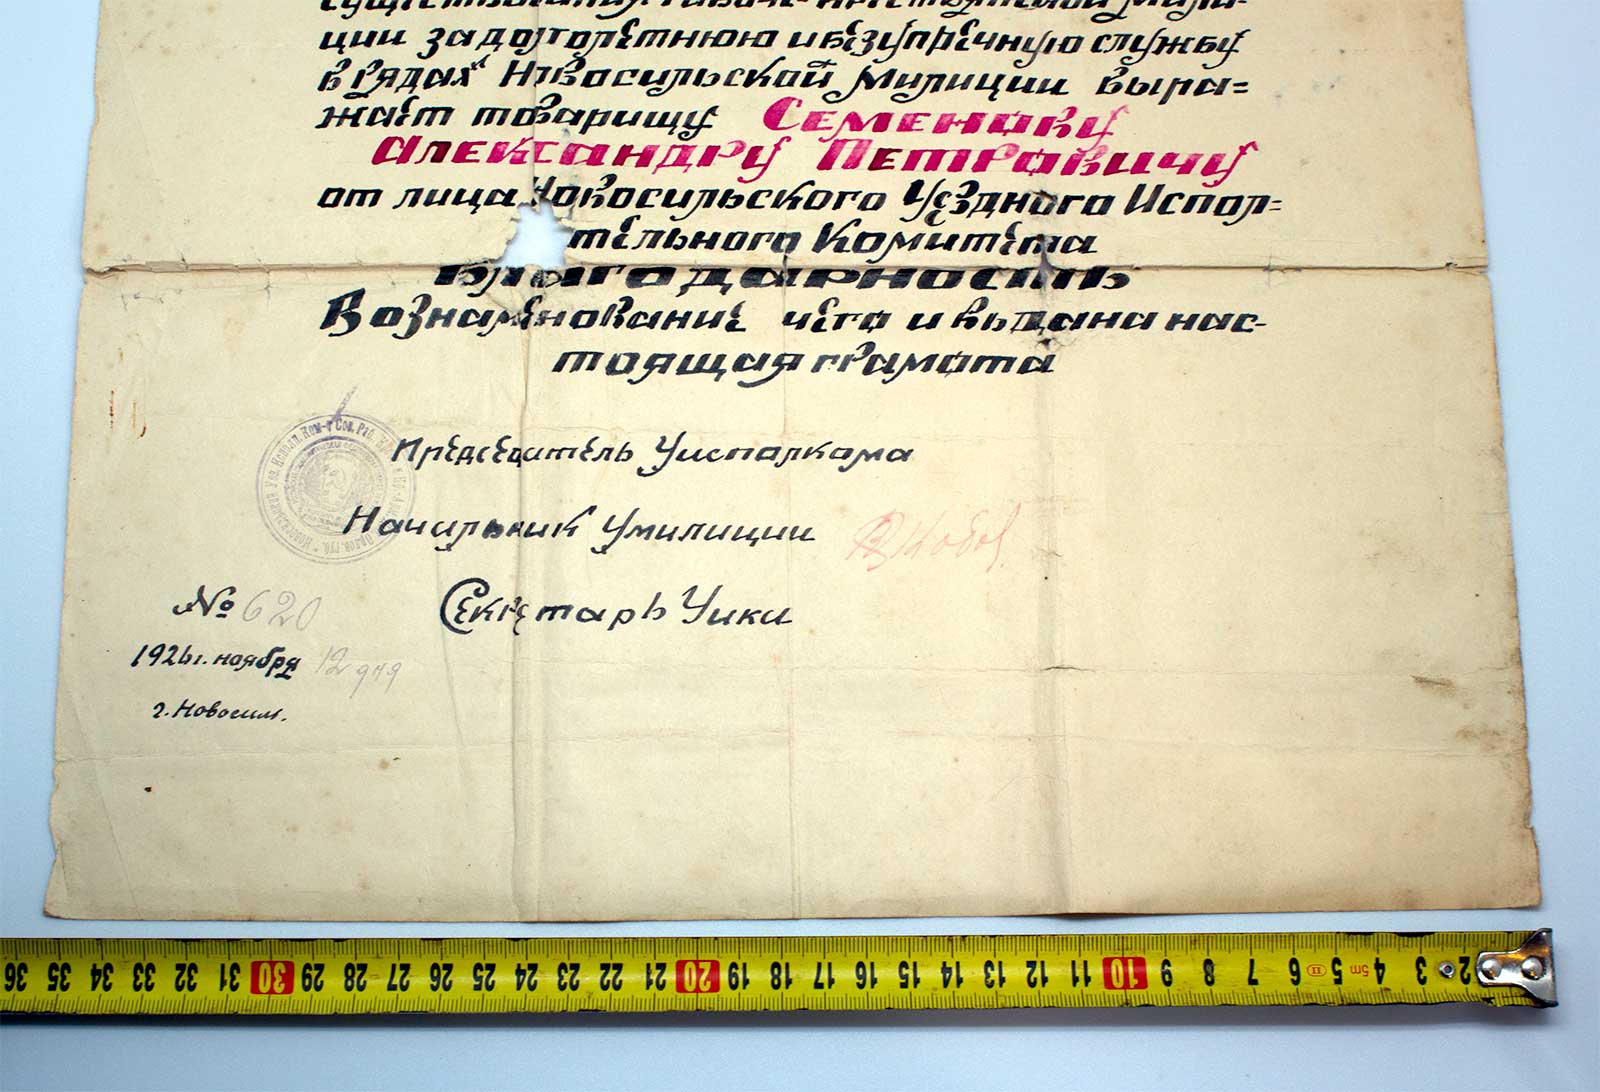 существования Рабоче-Крестьянской Мили-
ции за долголетнюю и безупречную службу
в рядах Новосильской Милиции выра=
жает товарищу Семенову
Александру Петровичу
от лица Новосильского Уездного Испол=
тельного Комитета
Благодарность
Вознаменование чего и выдана нас-
тоящая грамота
Председатель Уисполкома
Начильник Умилиции
Секретарь Уика
№ 620
1926 г. ноября 12 дня
г. Новосиль.
36 35 34 33 32 31 30 29 28 27 26 25 24 23 22 21 20 19 18 17 16 15 14 13 12 11 10 9 8 7 6 II 5 5m 4 3 2